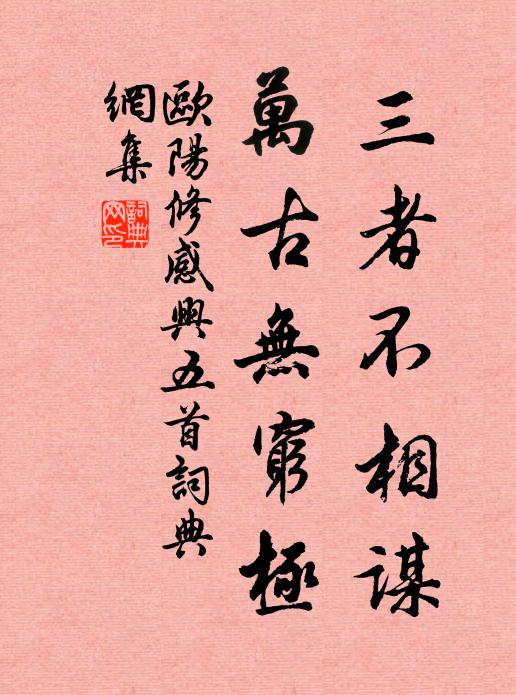 三者不相謀
萬古無窮極
歐陽修感興五首詞典
網集
詞典
网印